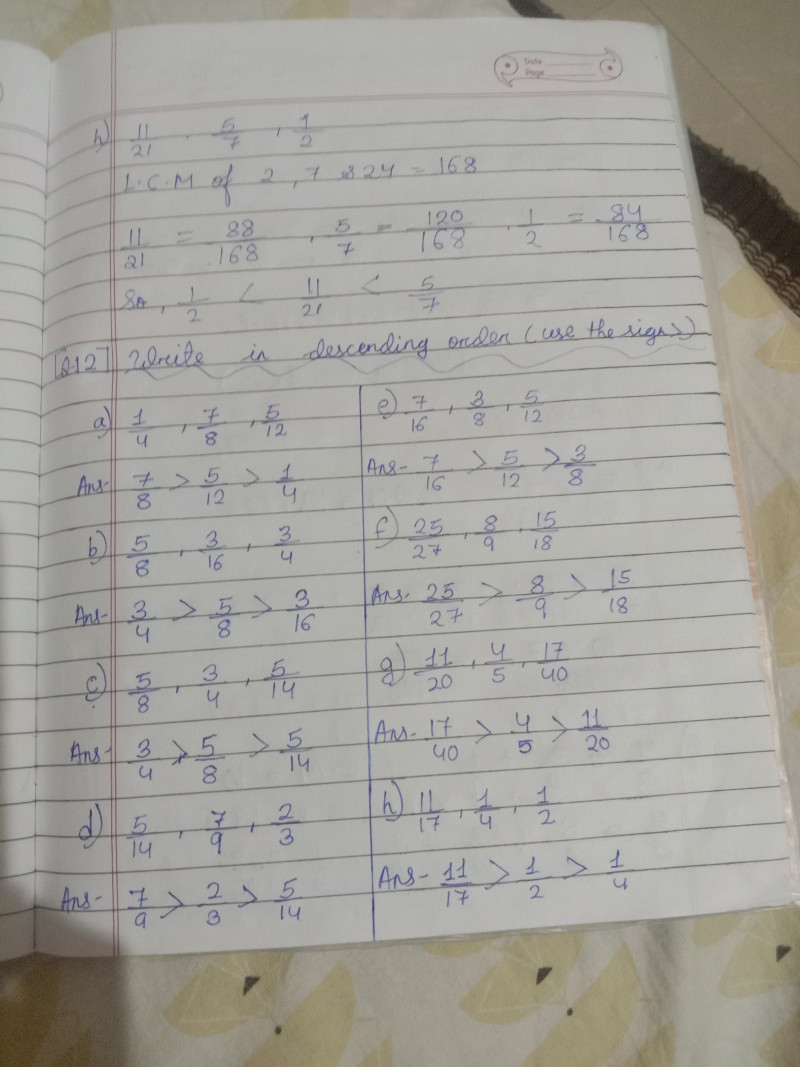 Date
Page
h) 11/21 , 5/7 , 1/2
L.C.M of 2, 7 & 24 = 168
11/21 = 88/168 , 5/7 = 120/168 , 1/2 = 84/168
So, 1/2 < 11/21 < 5/7
[Q.12] Write in descending order (use the signs)
a) 1/4 , 7/8 , 5/12
Ans- 7/8 > 5/12 > 1/4
b) 5/8 , 3/16 , 3/4
Ans- 3/4 > 5/8 > 3/16
c) 5/8 , 3/4 , 5/14
Ans- 3/4 > 5/8 > 5/14
d) 5/14 , 7/9 , 2/3
Ans- 7/9 > 2/3 > 5/14
e) 7/16 , 3/8 , 5/12
Ans- 7/16 > 5/12 > 3/8
f) 25/27 , 8/9 , 15/18
Ans- 25/27 > 8/9 > 15/18
g) 11/20 , 4/5 , 17/40
Ans- 17/40 > 4/5 > 11/20
h) 11/17 , 1/4 , 1/2
Ans- 11/17 > 1/2 > 1/4